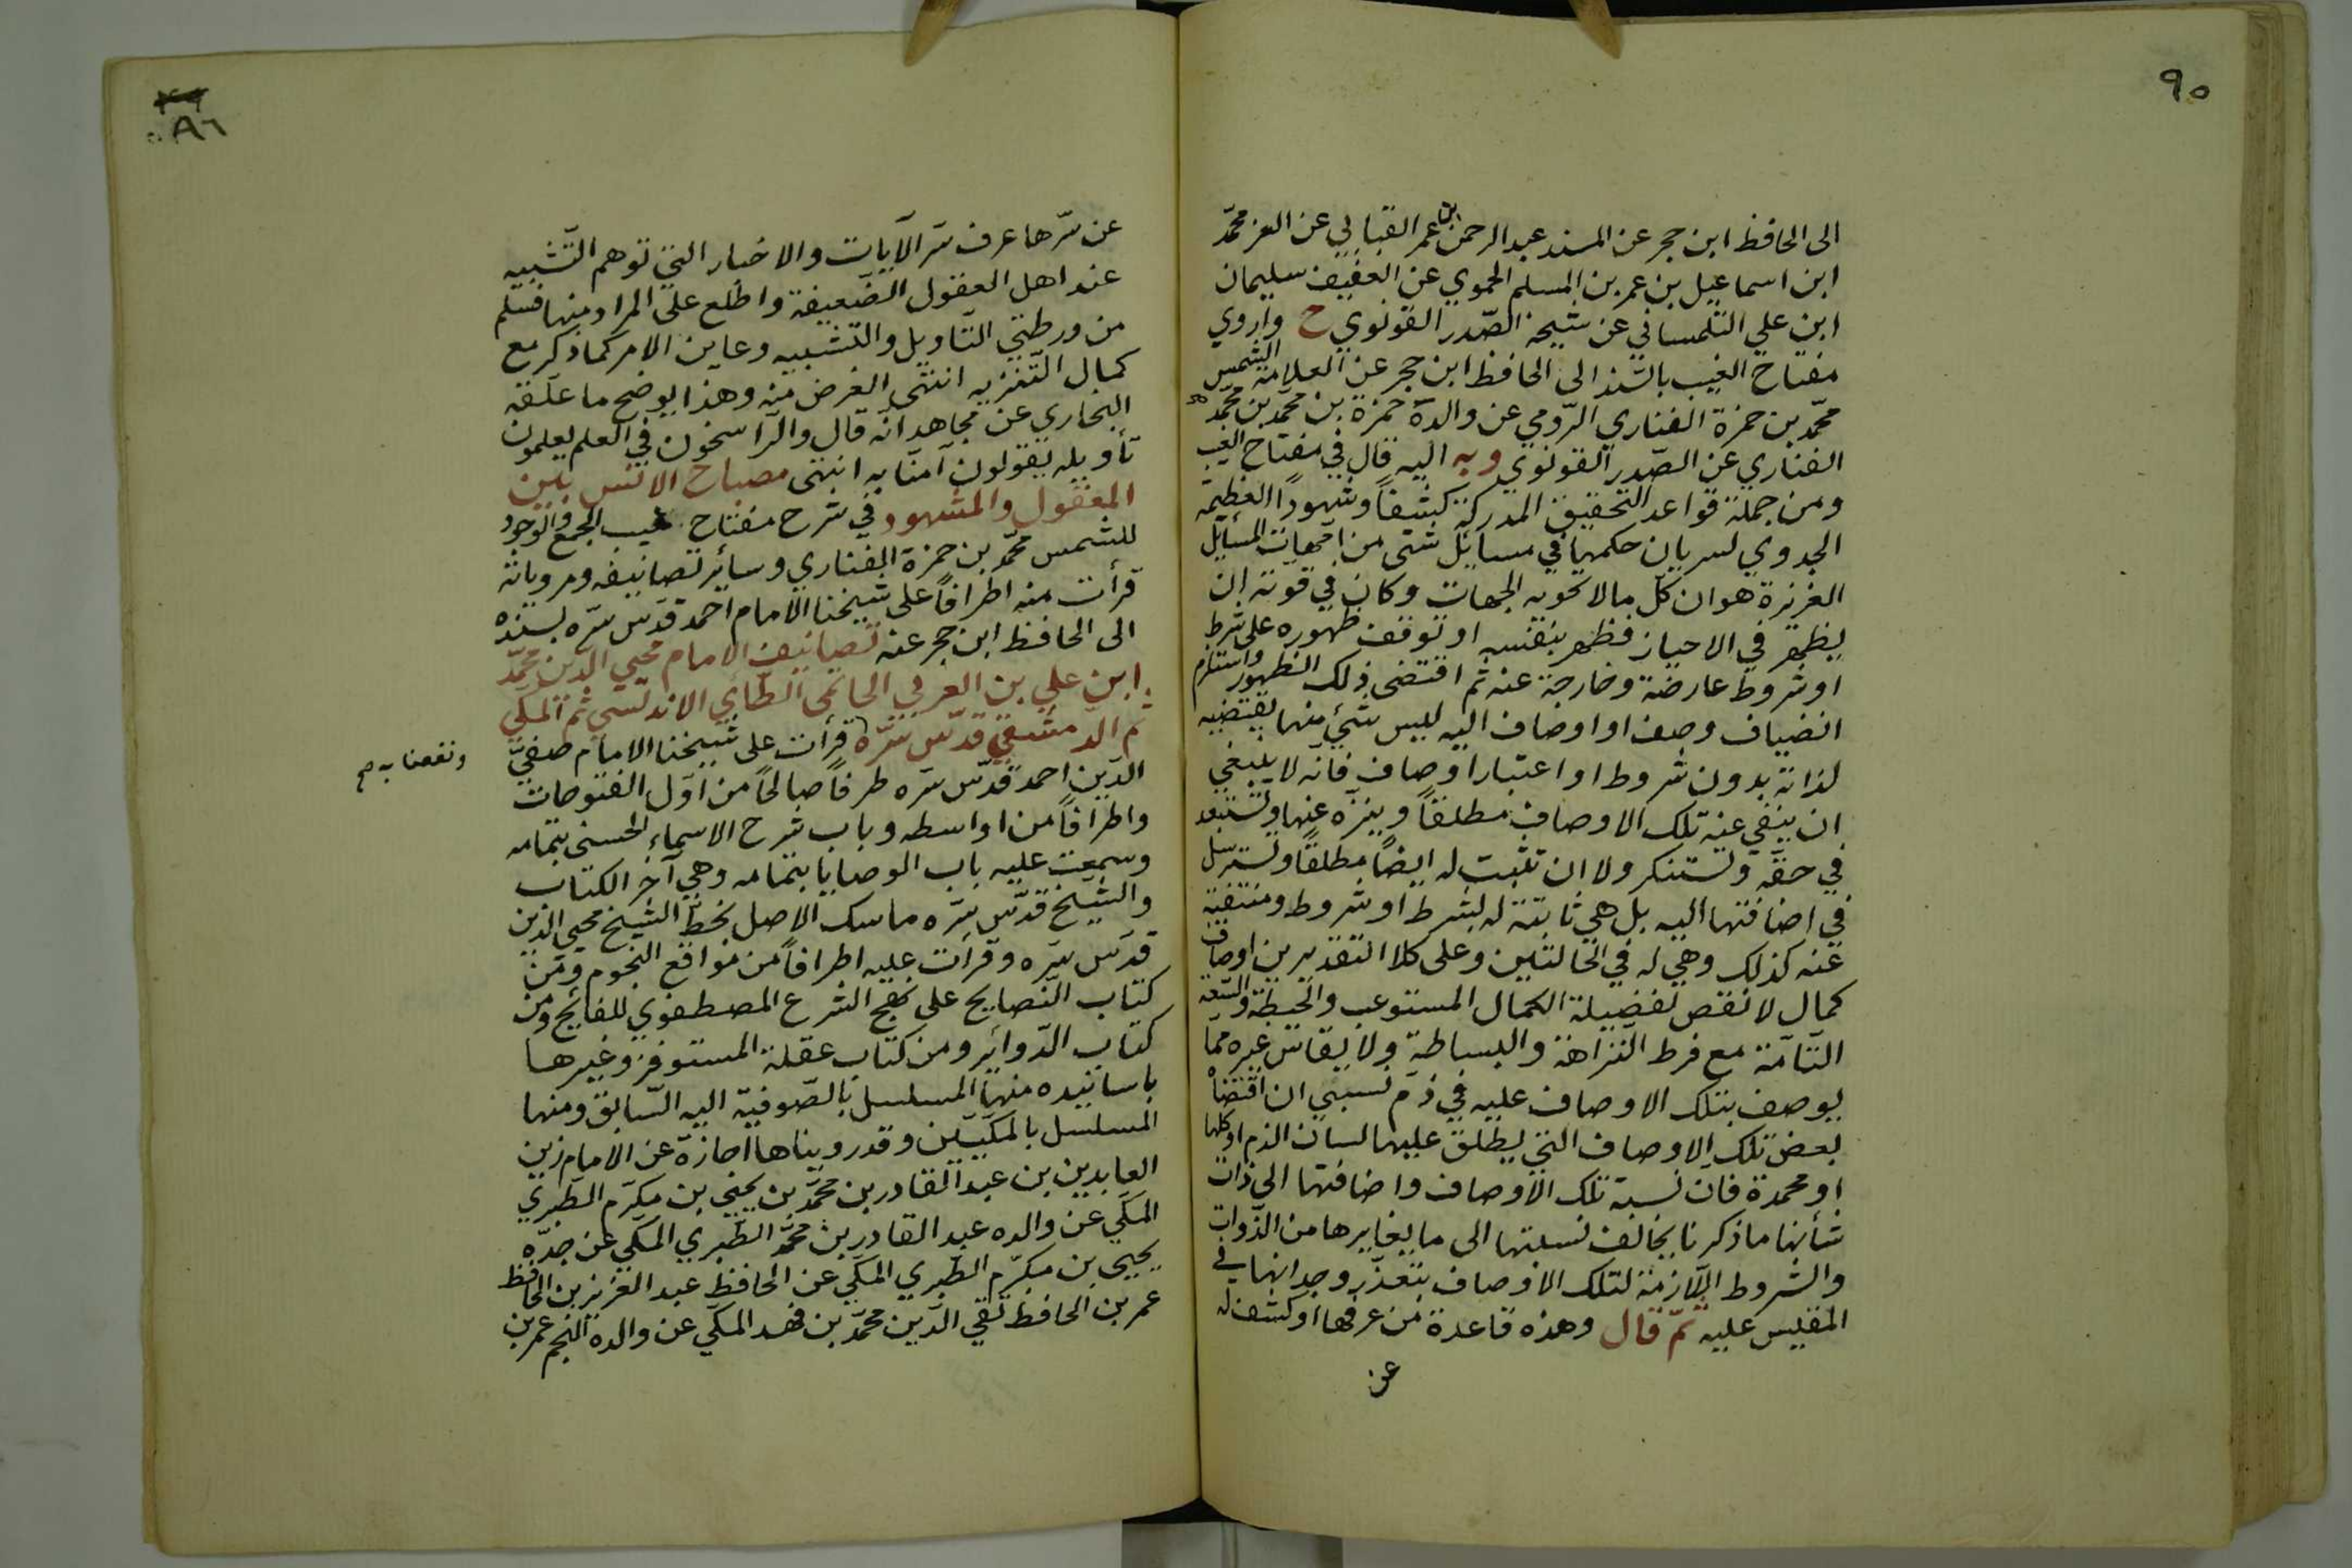 ٩٥
الى الحافظ ابن حجر عن المسند عبد الرحمن بن عمر القبابي عن العز محمّد
ابن اسماعيل بن عمر بن المسلم الحموي عن العفيف سليمان
ابن علي التلمساني عن شيخه الصّدر القونوي ح واروي
مفتاح الغيب بالسّند الى الحافظ ابن حجر عن العلامة الشمس
محمّد بن حمزة الفناري الرّومي عن والده حمزة بن محمّد بن محمّد
الفناري عن الصّدر القونوي وبه اليه قال في مفتاح الغيب
ومن جملة قواعد التحقيق المدركة كشفاً وشهوداً العظيمة
الجدوي لسريان حكمها في مسايل شتى من امّهات المسايل
العزيزة هو ان كلّ ما لا تحويه الجهات وكان في قوته ان
يظهر في الاحياز فظهر بنفسه او توقف ظهوره على شرط
او شروط عارضة وخارجة عنه ثم اقتضى ذلك الظهور واستلزم
انضياف وصف او اوصاف اليه ليس شئ منها يقتضيه
لذاته بدون شروط او اعتبار اوصاف فانّه لا ينبغي
ان ينفي عنه تلك الاوصاف مطلقاً وينزّه عنها وتستبعد
في حقّه وتستنكر ولا ان تثبت له ايضاً مطلقاً وتسترسل
في اضافتها اليه بل هي ثابتة له بشرط او شروط ومنتفية
عنه كذلك وهي له في الحالتين وعلى كلا التقديرين اوصاف
كمال لا نقص لفضيلة الكمال المستوعب والحيطة والسّعة
التّامّة مع فرط النّزاهة والبساطة ولا يقاس غيره ممّا
يوصف بتلك الاوصاف عليه في ذمّ نسبي ان اقتضاه
بعض تلك الاوصاف التي يطلق عليها لسان الذم او كلها
او محمدة فان نسبة تلك الاوصاف واضافتها الى ذات
شأنها ما ذكرنا يخالف نسبتها الى ما يغايرها من الذّوات
والشروط اللّازمة لتلك الاوصاف يتعذّر وجدانها في
المقيس عليه ثمّ قال وهذه قاعدة من عرفها او كشف له
عن
٨٦
عن سرّها عرف سرّ الآيات والاخبار التي توهم التّشبيه
عند اهل العقول الضّعيفة واطّلع على المراد منها فسلم
من ورطتي التّاويل والتّشبيه وعاين الامر كما ذكر مع
كمال التّنزيه انتهى الغرض منه وهذا يوضح ما علّقه
البخاري عن مجاهد انّه قال والرّاسخون في العلم يعلمون
تأويله يقولون آمنّا به انتهى مصباح الانس بين
المعقول والمشهود في شرح مفتاح غيب الجمع والوجود
للشمس محمّد بن حمزة الفناري وسائر تصانيفه ومروياته
قرأت منه اطرافاً على شيخنا الامام احمد قدّس سرّه بسنده
الى الحافظ ابن حجر عنه تصانيف الامام محيي الدّين محمّد
ابن علي بن العربي الحاتمي الطّائي الاندلسي ثم المكّي
ثم الدّمشقي قدّس سرّه قرأت على شيخنا الامام صفيّ
ونفعنا به صح
الدّين احمد قدّس سرّه طرفاً صالحاً من اوّل الفتوحات
واطرافاً من اواسطه وباب شرح الاسماء الحسنى بتمامه
وسمعت عليه باب الوصايا بتمامه وهي آخر الكتاب
والشّيخ قدّس سرّه ماسك الاصل بخط الشيخ محيي الدين
قدّس سرّه وقرأت عليه اطرافاً من مواقع النجوم ومن
كتاب النّصايح على نهج الشرع المصطفوي للفائح ومن
كتاب الدّوائر ومن كتاب عقلة المستوفز وغيرها
باسانيده منها المسلسل بالصّوفيّة اليه السّابق ومنها
المسلسل بالمكّيّين وقد رويناها اجازة عن الامام زين
العابدين بن عبد القادر بن محمّد بن يحيى بن مكرّم الطّبري
المكّي عن والده عبد القادر بن محمّد الطّبري المكّي عن جدّه
يحيى بن مكرّم الطّبري المكّي عن الحافظ عبد العزيز بن الحافظ
عمر بن الحافظ تقي الدّين محمّد بن فهد المكّي عن والده النجم عمر بن